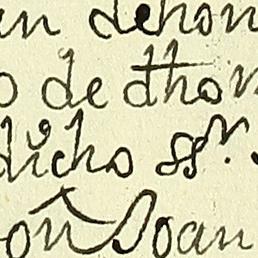 un dehon
o de dtthom
dicho ssr.
on Joan